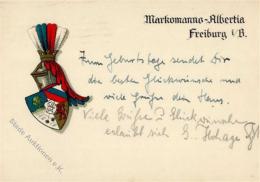 Markomanno-Albertia
Freiburg i/B.
Zum Geburtstage sendet Dir
die besten Glückwünsche und
viele Grüße Dein Hans.
Viele Grüße & Glückwünsche
erlaubt sich
Bünde Auktionen e.K.